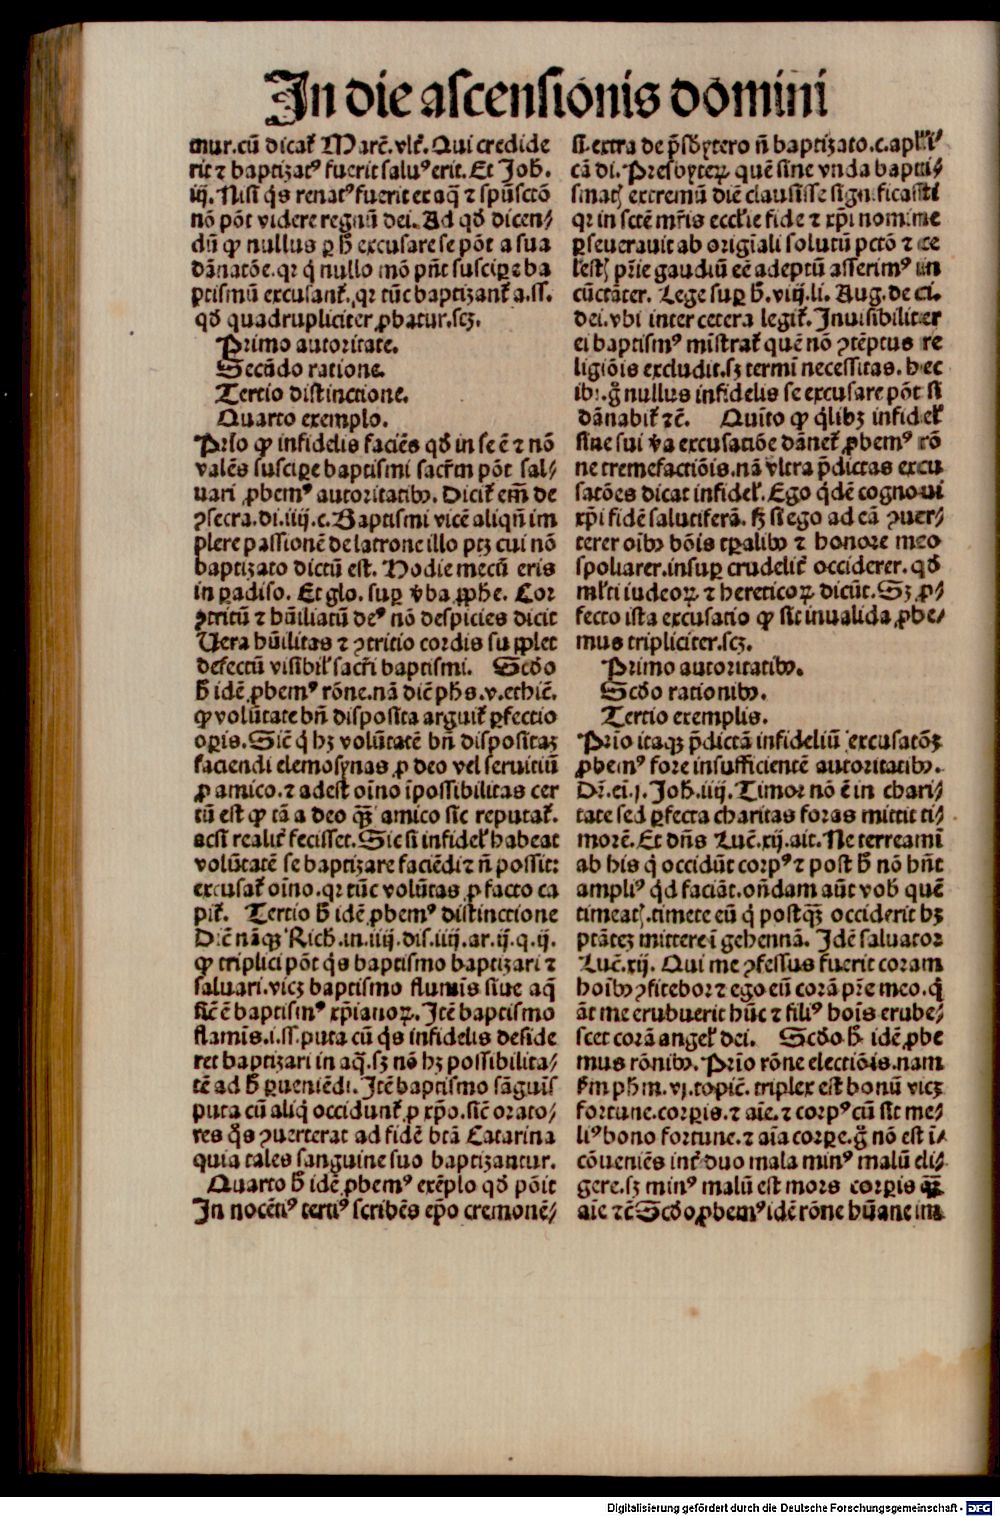 In die ascensionis domini
mur.cū dicat̉ Marc̄.vlt̉. Qui credide
rit ⁊ baptizatꝰ fuerit saluꝰ erit. Et Joh̄.
iij. Nisi q̇s renatꝰ fuerit ex aq̄ ⁊ spūsctō
nō pōt videre regnū dei. Ad qḋ dicen⸗
dū ꝙ nullus ꝑ h̄ excusare se pōt a sua
dānatōe.qr q̇ nullo mō pn̄t suscipe̱ ba
ptismū excusant̉.qr tūc baptizant̉ a.ss.
qḋ quadrupliciter ꝓbatur.scꝫ.
Primo autoritate.
Secūdo ratione.
Tertio distinctione.
Quarto exemplo.
Pr̄io ꝙ infidelis faciēs qḋ in se ē ⁊ nō
valēs suscipe̱ baptismi sacr̄m pōt sal⸗
uari ꝓbemꝰ autoritatibꝰ. Dicit̉ em̄ de
ꝯsecra.di.iiij.c. Baptismi vicē aliqn̄ im
plere passionē de latrone illo ptꝫ cui nō
baptizato dictū est. Hodie mecū eris
in ꝑadiso. Et glo. sup̱ v̄ba ꝓphe. Cor
ꝯtritū ⁊ hūiliatū deꝰ nō despicies dicit
Uera hūilitas ⁊ ꝯtritio cordis supplet
defectū visibil̉ sacr̄i baptismi. Scḋo
h̄ idē ꝓbemꝰ rōne.nā dic̄ phs.v.ethic̄.
ꝙ volūtate bn̄ disposita arguit̉ ꝑfectio
oꝑis. Sic̄ q̇ hꝫ volūtatē bn̄ dispositaꝫ
faciendi elemosynas ꝓ deo vel seruitiū
ꝓ amico.⁊ adest oīno īpossibilitas cer
tū est ꝙ tā a deo qꝫ̄ amico sic̄ reputat̉.
acsi realit̉ fecisset. Sic si infidel̉ habeat
volūtatē se baptizare faciēdi ⁊ n̄ possit:
excusat̉ oīno.qr tūc volūtas ꝓ facto ca
pit̉. Tertio h̄ idē ꝓbemꝰ distinctione
Dic̄ nāqꝫ Rich̄.in.iiij.dis.iiij.ar.ij.q.ij.
ꝙ triplici pōt q̇s baptismo baptizari ⁊
saluari.vicꝫ baptismo flumīs siue aq̄
sic̄ ē baptismꝰ xp̄ianoꝝ. Itē baptismo
flamīs.i.ss.puta cū q̇s infidelis deside
ret baptizari in aq̄.sꝫ nō hꝫ possibilita⸗
tē ad h̄ ꝑueniēdi. Itē baptismo sāguīs
puta cū aliq̇ occidunt̉ ꝓ xp̄o.sic̄ orato⸗
res q̇s ꝯuerterat ad fidē btā Catarina
quia tales sanguine suo baptizantur.
Quarto h̄ idē ꝓbemꝰ exēplo qḋ pōit
In nocētiꝰ tertiꝰ scribēs ep̄o cremonē⸗
si.extra de p̄sbytero n̄ baptizato.c.apl̉i⸗
cā di. Presbyteꝝ quē sine vnda bapti⸗
smatꝭ extremū diē clausisse significasti
qr in sctē mr̄is eccl̉ie fide ⁊ xp̄i nomine
ꝑseuerauit ab origīali solutū pctō ⁊ ce
lestꝭ pr̄ie gaudiū eē adeptū asserimꝰ in
cūctāter. Lege sup̱ h̄.viij.li. Aug. de ci.
dei.vbi inter cetera legit̉. Inuisibiliter
ei baptismꝰ mīstrat̉ quē nō ꝯtēptus re
ligiōis excludit.sꝫ termī necessitas. hec
ibi.g̊ nullus infidelis se excusare pōt si
dānabit̉ ⁊c̄. Quīto ꝙ q̇libꝫ infidel̉
siue sui v̄a excusatiōe dānet̉ ꝓbemꝰ rō
ne tremefactiōis.nā vltra p̄dictas excu
satōes dicat infidel̉. Ego q̇dē cognoui
xp̄i fidē salutiferā. sꝫ si ego ad eā ꝯuer⸗
terer oībꝰ bōis tꝑalibꝰ ⁊ honore meo
spoliarer.insup̱ crudelit̉ occiderer. qḋ
ml̉ti iudeoꝝ ⁊ hereticoꝝ dicūt. Sꝫ ꝓ⸗
fecto ista excusatio ꝙ sit inualida ꝓbe⸗
mus tripliciter.scꝫ.
Primo autoritatibꝰ.
Scḋo rationibꝰ.
Tertio exemplis.
Prīo itaqꝫ p̄dictā infideliū excusatōꝫ
ꝓbemꝰ fore insufficientē autoritatibꝰ.
Dr̄.ei.j. Joh̄.iiij. Timor nō ē in chari⸗
tate sed ꝑfecta charitas foras mittit ti⸗
morē. Et dn̄s Luc̄.xij.ait. Ne terreamī
ab his q̇ occidūt corpꝰ ⁊ post h̄ nō hn̄t
ampliꝰ q̇d faciāt.on̄dam aūt vob̄ quē
timeatꝭ.timete eū q̇ postqꝫ̄ occiderit hꝫ
ptāteꝫ mittere ī gehennā. Idē saluator
Luc̄.xij. Qui me ꝯfessus fuerit coram
hoībꝰ ꝯfitebor ⁊ ego eū corā pr̄e meo.q̇
āt me erubuerit hūc ⁊ filiꝰ hoīs erube⸗
scet corā angel̉ dei. Scḋo h̄ idē ꝓbe
mus rōnibꝰ. Prīo rōne electiōis.nam
sm̄ phm̄.vj.topic̄. triplex est bonū vicꝫ
fortune.corꝑis.⁊ aīe.⁊ corpꝰ cū sit me⸗
liꝰ bono fortune.⁊ aīa corꝑe.g̊ nō est ī⸗
cōueniēs int̉ duo mala minꝰ malū eli⸗
gere.sꝫ minꝰ malū est mors corꝑis qꝫ̄
aīe ⁊c̄ Scḋo ꝓbemꝰ idē rōne hūane im
Digitalisierung gefördert durch die Deutsche Forschungsgemeinschaft - DFG